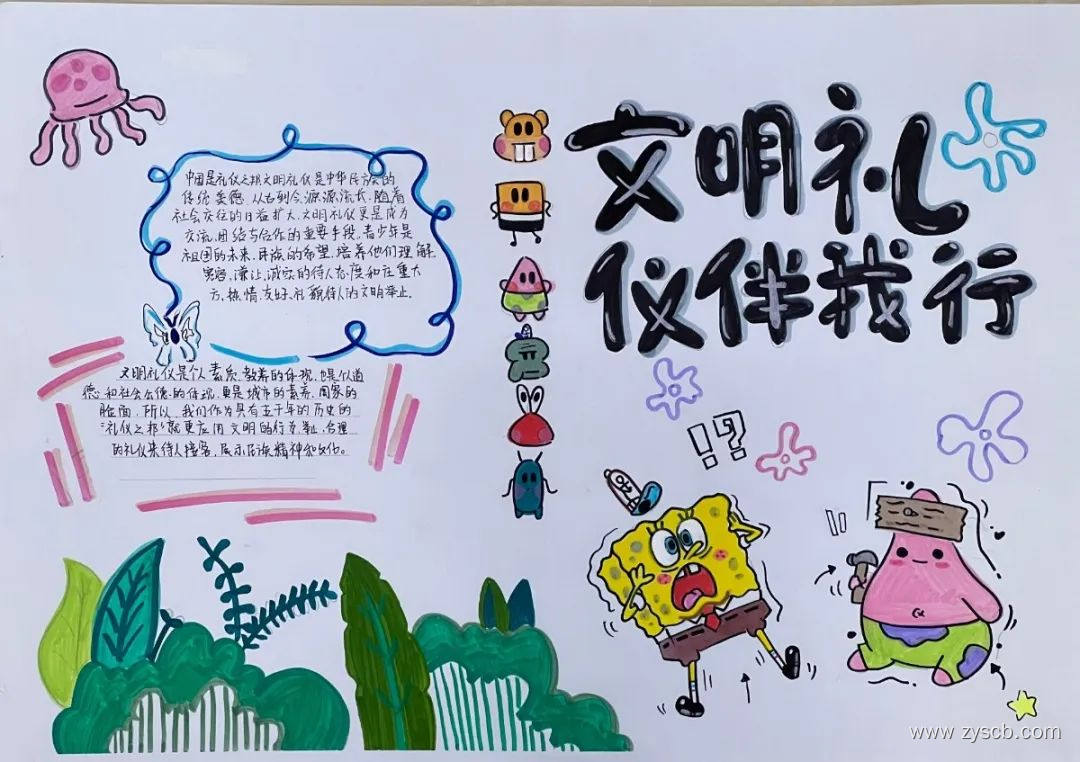 文明礼
仪伴我行
中国是礼仪之邦文明礼仪是中华民族的
传统美德,从古到今,源源流长,随着
社会交往的日益扩大,文明礼仪更是成为
交流,团结与合作的重要手段,青少年是
祖国的未来,民族的希望,培养他们理解
宽容,谦让,诚实的待人态度和庄重大
方,热情,友好,礼貌待人的文明举止。
文明礼仪是个人素质,教养的体现,也是个人道
德和社会公德的体现,更是城市的素养,国家的
脸面,所以,我们作为具有五千年的历史的
“礼仪之邦”就更应用文明的行为举止,合理
的礼仪来待人接客,展示民族精神和文化。
!?
www.zyscb.com